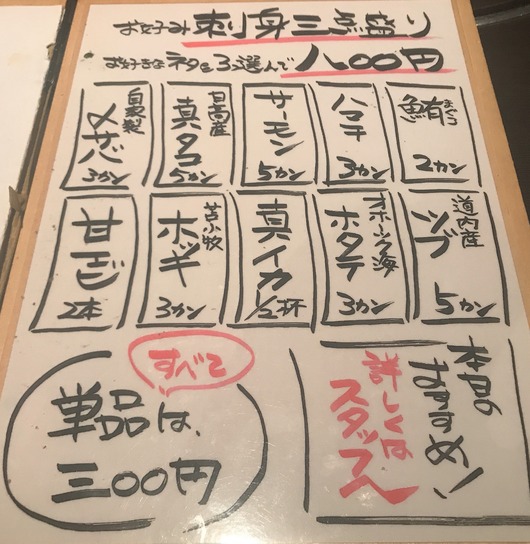 お好み刺身三点盛り
お好きなネタを3選んで八〇〇円
鮪
まぐろ
2カン
ハマチ
3カン
サーモン
5カン
日高産
真タコ
5カン
自家製
〆サバ
3カン
道内産
ツブ
5カン
オホーツク海
ホタテ
3カン
真イカ
1/2杯
苫小牧
ホッキ
3カン
甘エビ
2本
本日の
おすすめ!
詳しくは
スタッフへ
すべて
単品は、
三〇〇円